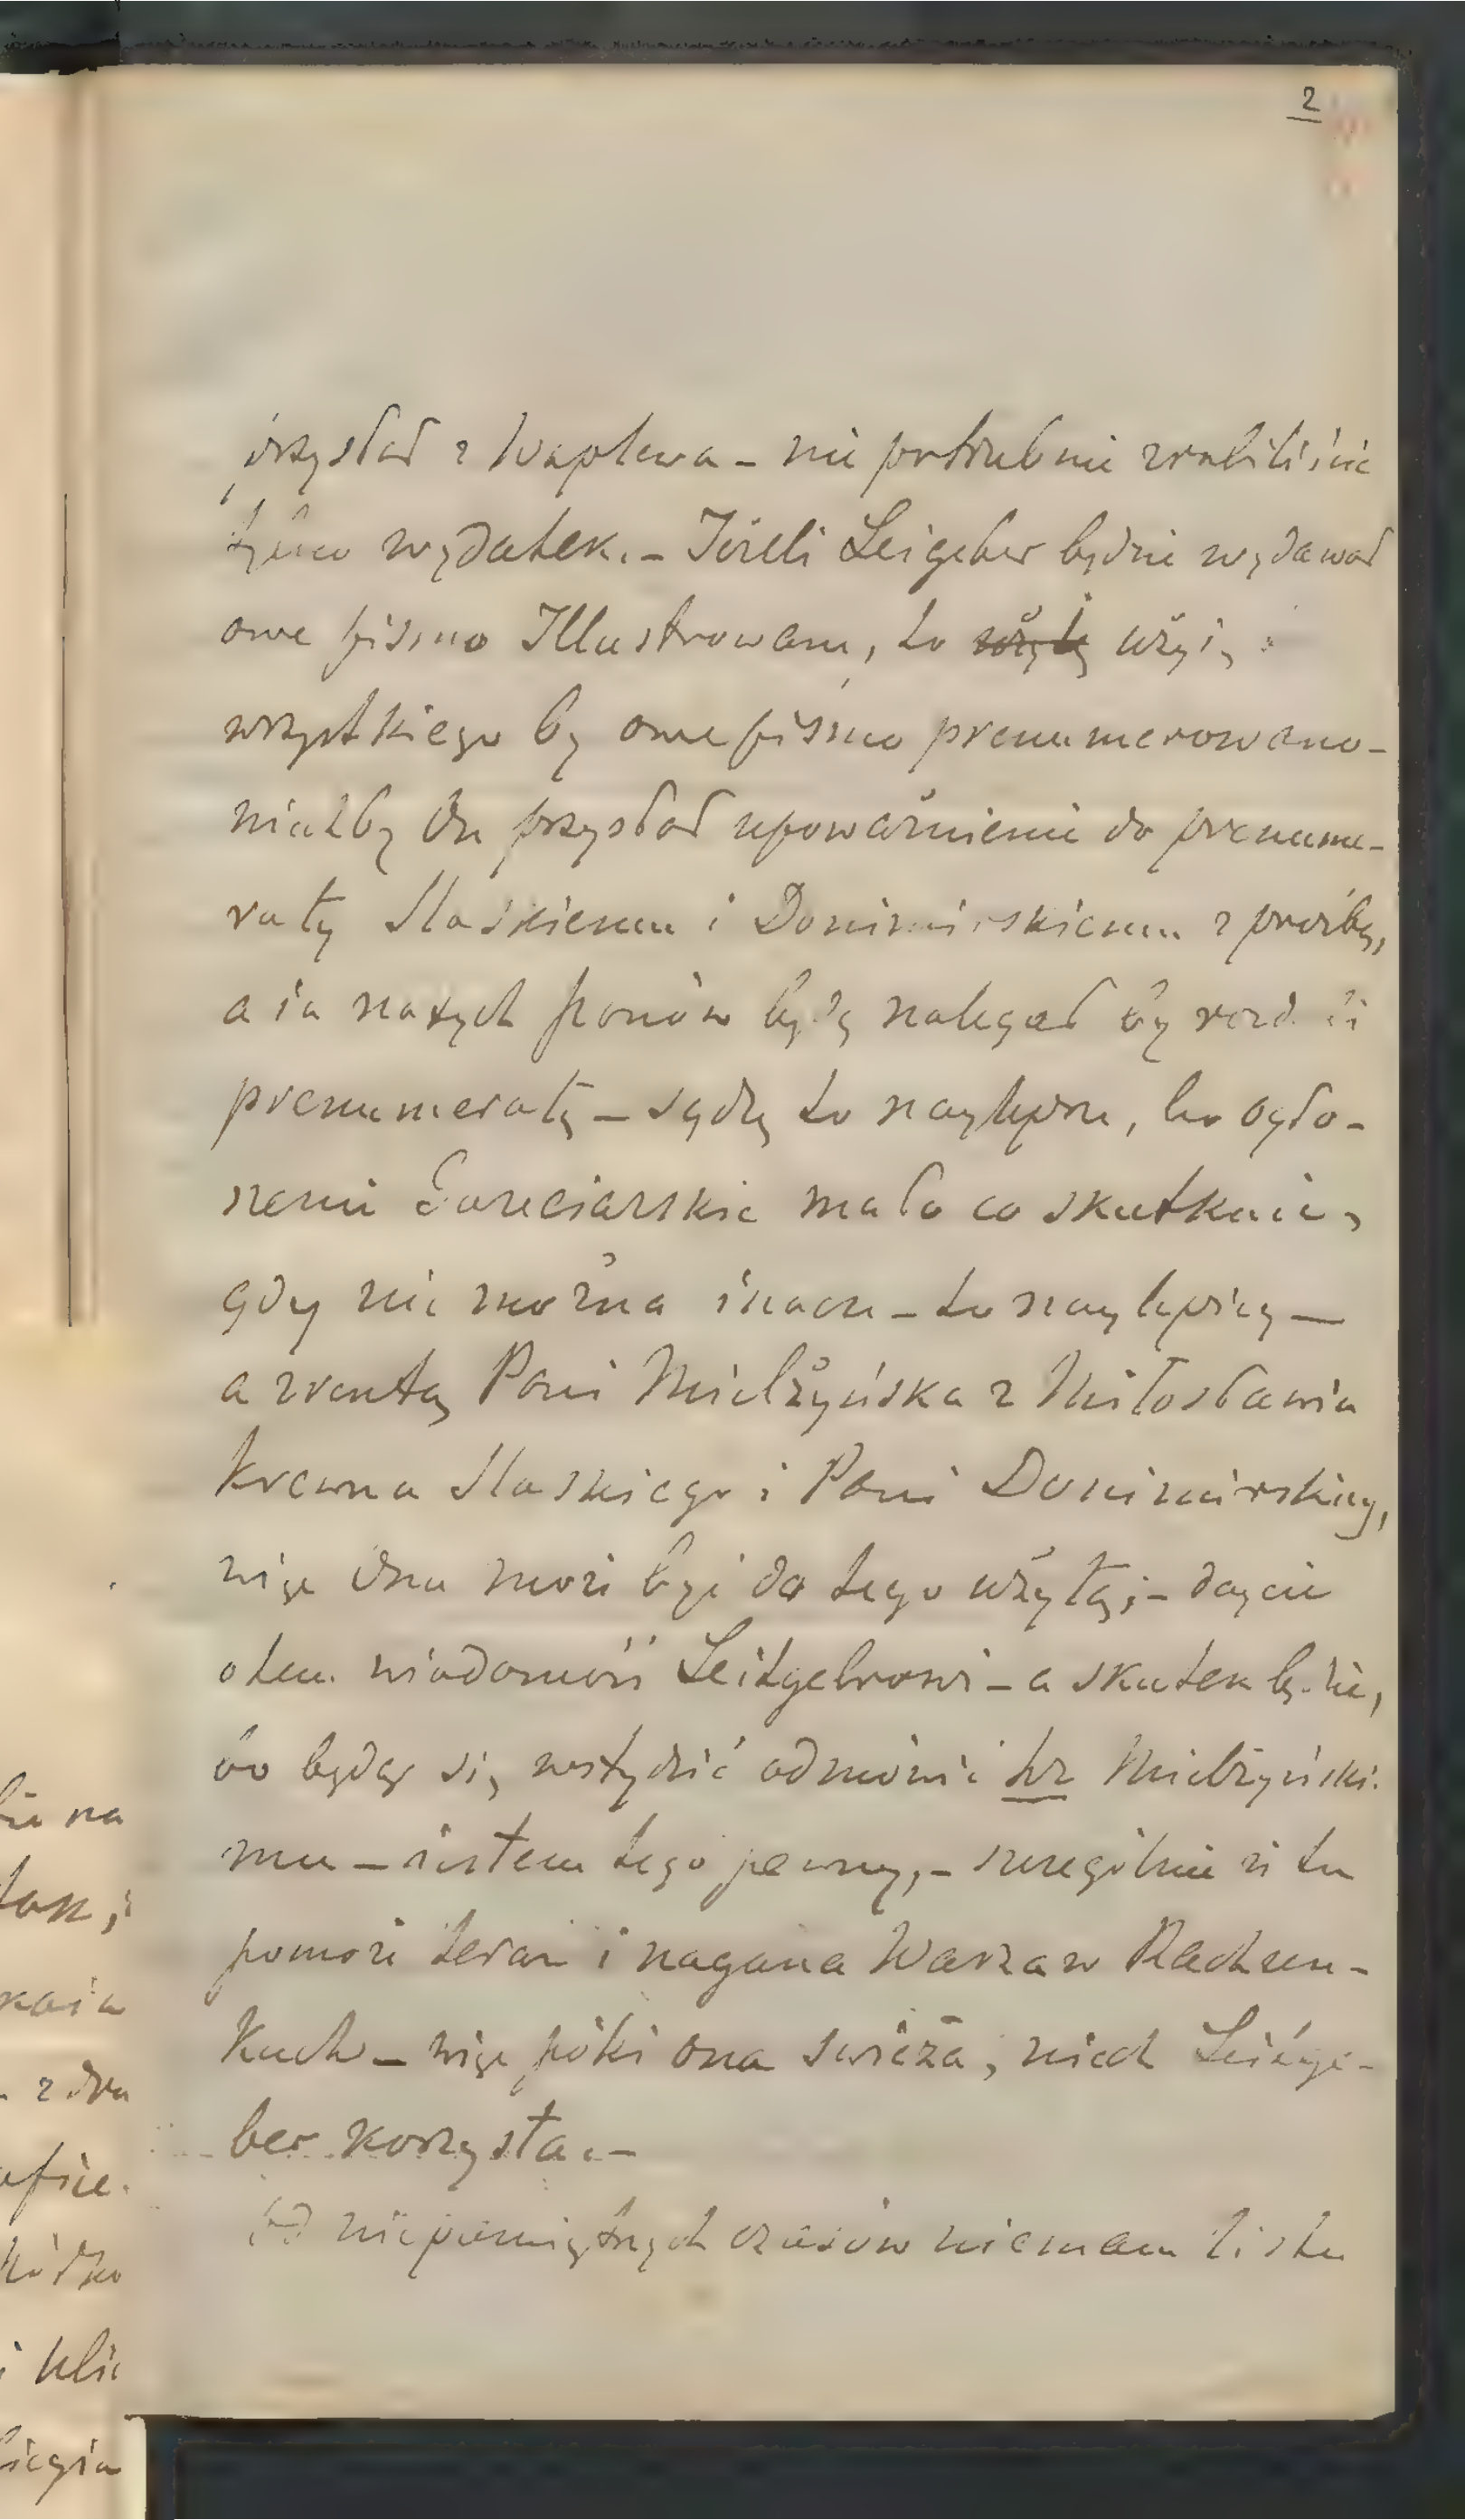 2
przysłał z Waplewa – nie potrzebnie zrobiliście
wydatek. – Jeżeli Leigeber będzie wydawał
owe pismo Illustrowane, to użyię
wszystkiego by owe pismo prenumerowano –
niechby On przysłał upoważnienie do prenume-
raty Slaskiemu i Donimirskiemu z prośbą,
a ia naszych panów będę nalegał by
prenumeratę – sądzę to naylepsze, bo ogło-
szenie Gazeciarskie mało co skutkuie,
gdy nie można inacze – to naylepiey —
a zresztą Pani Mielżyńska z Miłosławia
krewna Slaskiego i Pani Donimirskiey,
więc Ona może być do tego użytą; – daycie
o tem wiadomość Leitgebrowi – a skutek będzie,
bo będą się wstydzić odmówić hr Mielżyński.
mu – iestem tego pewny, – szczegolnie że tu
pomoże teraz i nagana Warszaw Rachun-
kach – więc póki ona świeża, niech Leitge-
ber korzysta. –
Od niepamiętnych czasów niemam listu
na
z dru